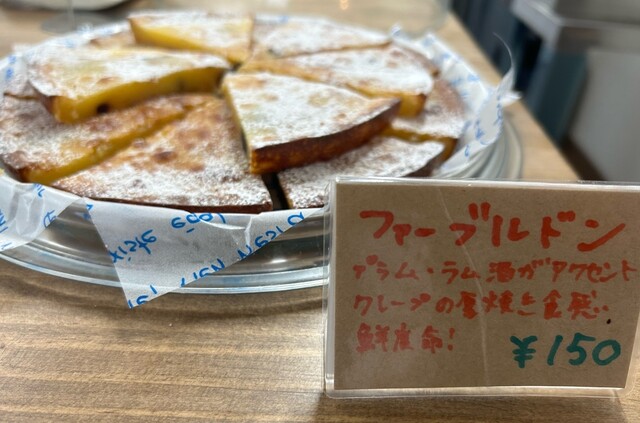 ファーブルドン
プラム・ラム酒がアクセント
クレープの厚焼き食感..
鮮度命!
¥150